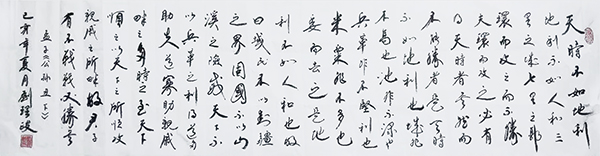 天時不如地利
地利不如人和三
里之城七里之郭
環而攻之而不勝
夫環而攻之必有
得天時者矣然而
不勝者是天時
不如地利也城非
不高也池非不深也
兵革非不堅利也
米粟非不多也
委而去之是地
利不如人和也故
曰域民不以封疆
之界固國不以山
溪之險威天下不
以兵革之利得道者多
助失道寡助親戚
畔之多助之至天下
順之以天下之所順攻
親戚之所畔故君子
有不戰戰必勝矣
孟子公孫丑下
己亥年夏月劉